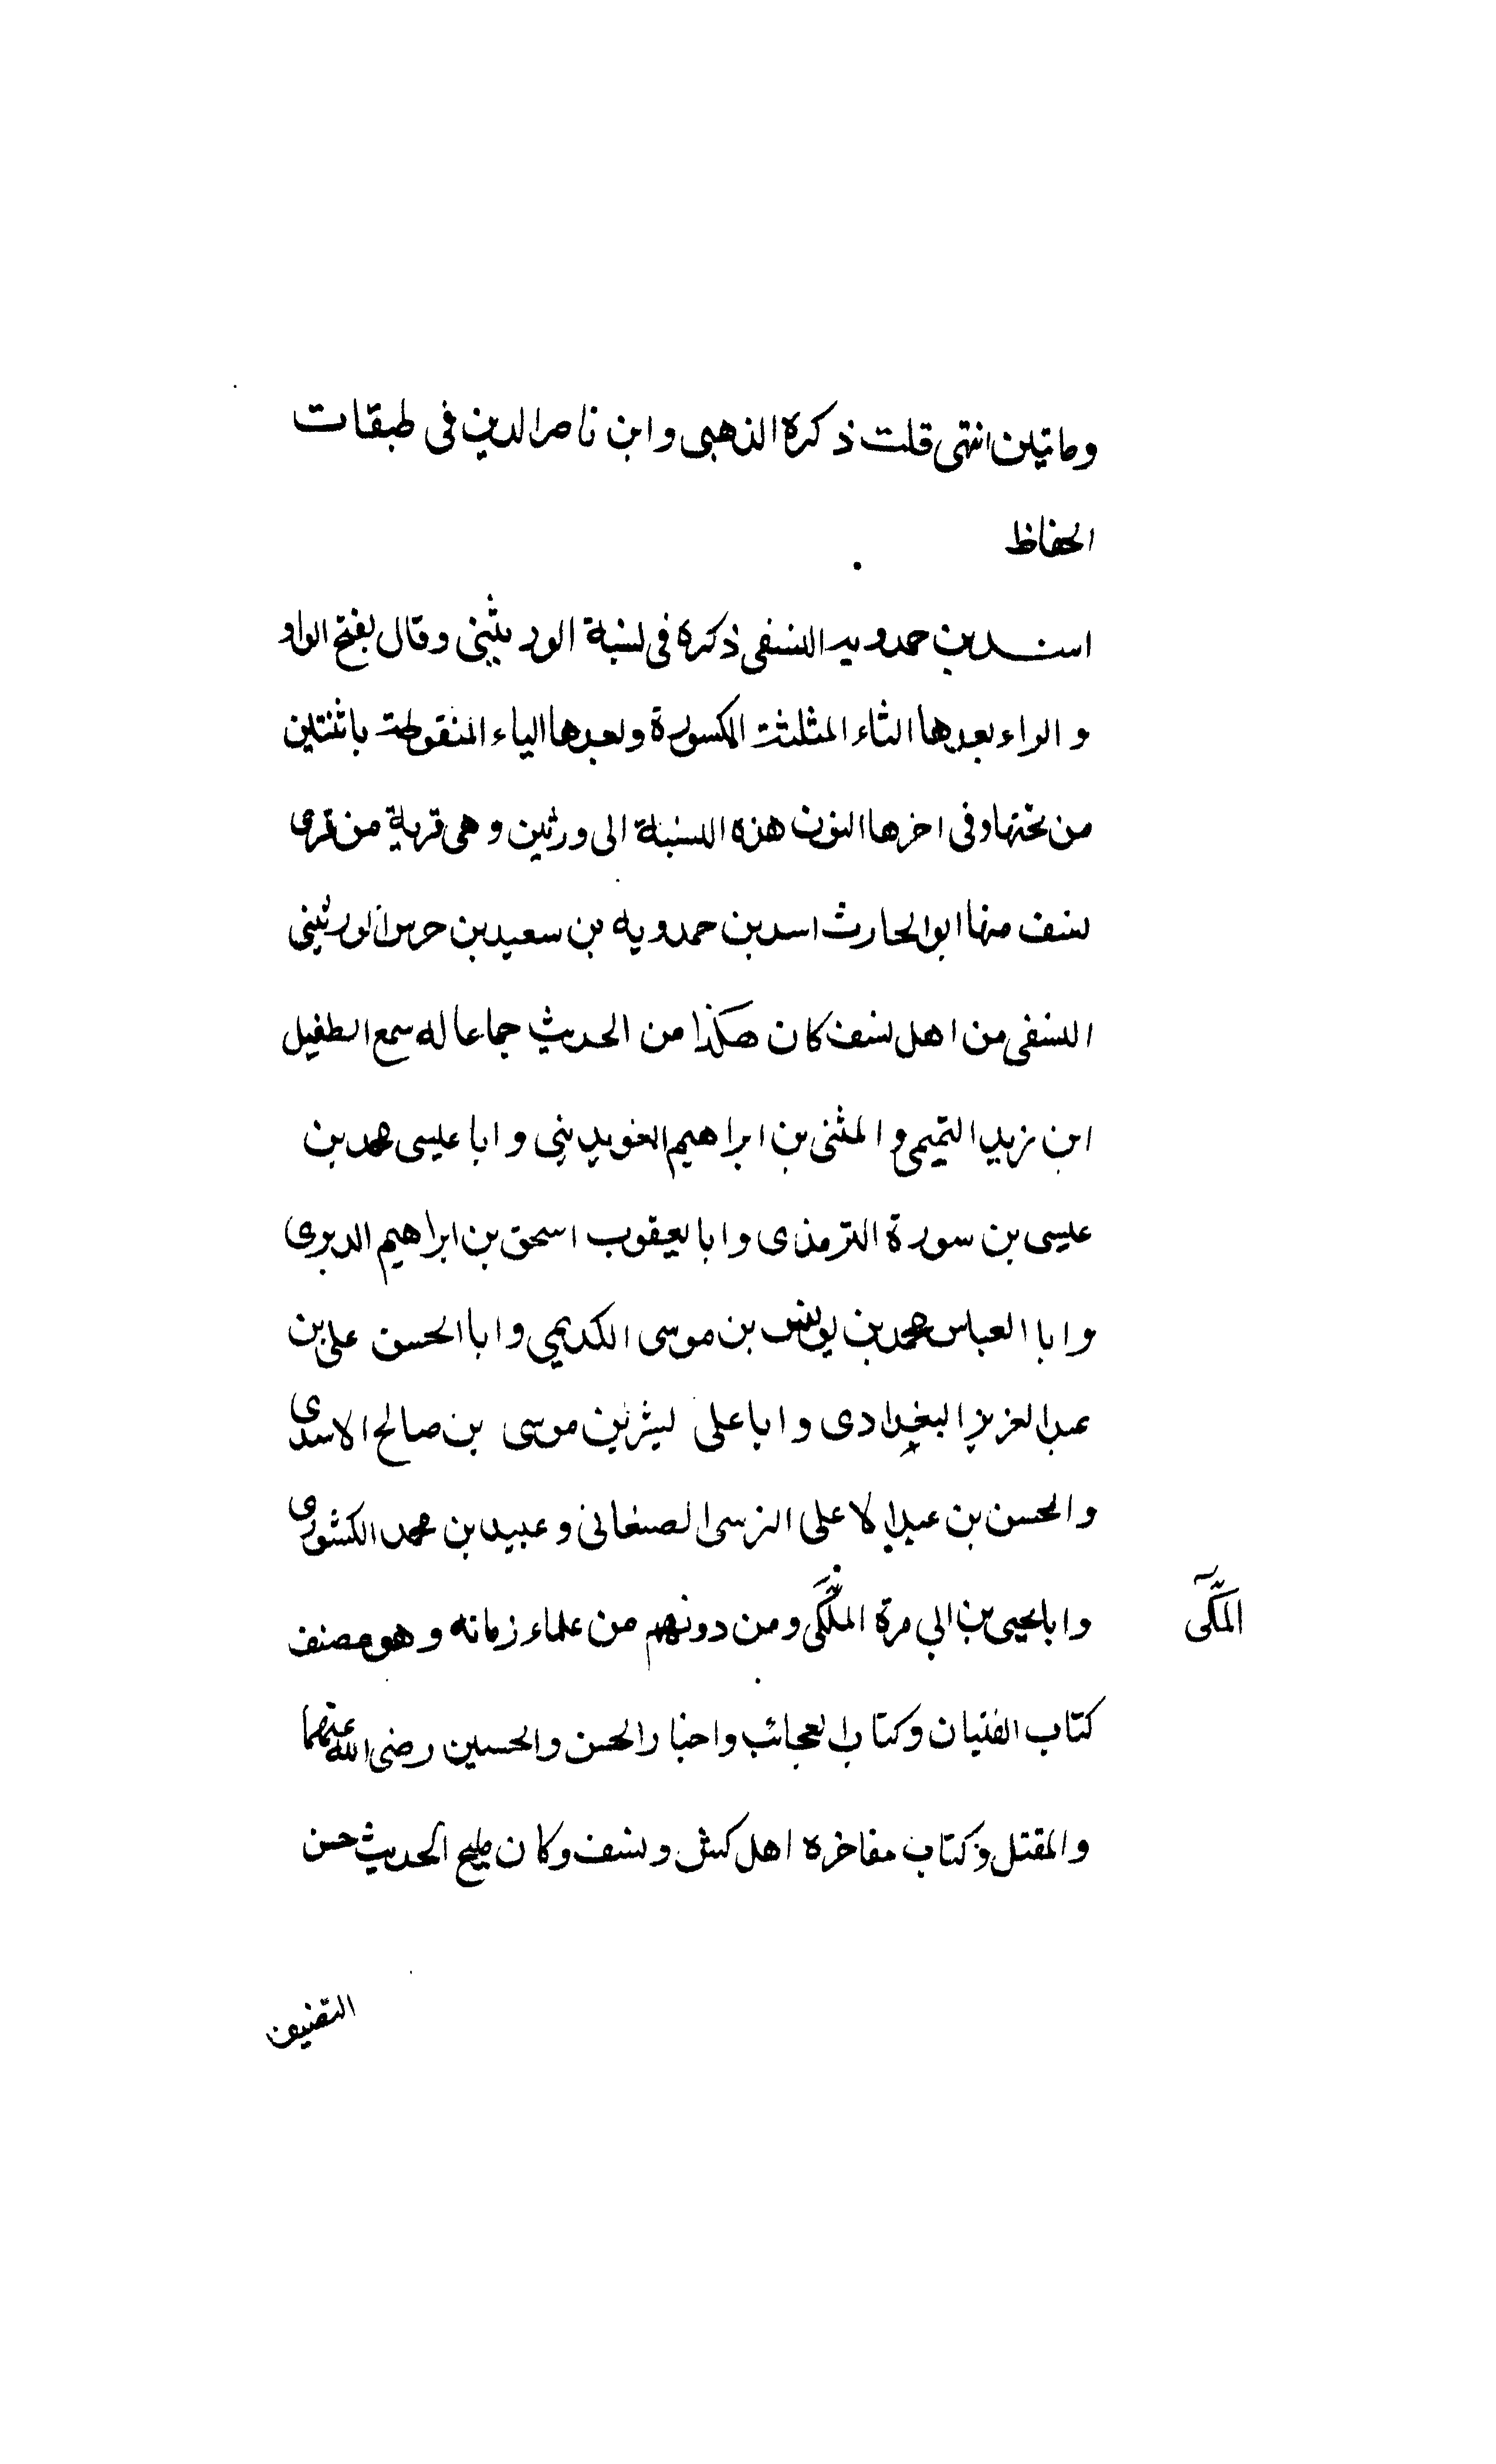 ومايتين انتهى قلت ذكره الذهبى وابن ناصر الدين فى طبقات
الحفاظ
اسد بن حمدويه النسفى ذكره فى نسبة الورثينى وقال بفتح الواو
والراء بعدها الثاء المثلثة المكسورة وبعدها الياء المنقوطة باثنتين
من تحتها وفى اخرها النون هذه النسبة الى ورثين وهى قرية من قرى
نسف منها ابو الحارث اسد بن حمدويه بن سعيد بن الورثينى
النسفى من اهل نسف كان هكذا من الحديث جماعا له سمع الطفيل
ابن زيد التميمى والمثنى بن ابراهيم الغوبدينى وابا عيسى محمد بن
عيسى بن سورة الترمذى وابا يعقوب اسحق بن ابراهيم الدبرى
وابا العباس محمد بن يونس بن موسى الكديمي وابا الحسن على بن
عبد العزيز البغدادى وابا على بشر بن موسى بن صالح الاسدى
والحسن بن عبد الاعلى النرسى الصنعانى وعبيد بن محمد الكشورى
وابا يحيى بن ابي مرة المكى ومن دونهم من علماء زمانه وهو مصنف
المكى
كتاب الفتيان وكتاب العجائب واخبار الحسن والحسين رضى الله عنهما
والمقتل وكتاب مفاخره اهل كش ونسف وكان مليح الحديث حسن
التصنيف